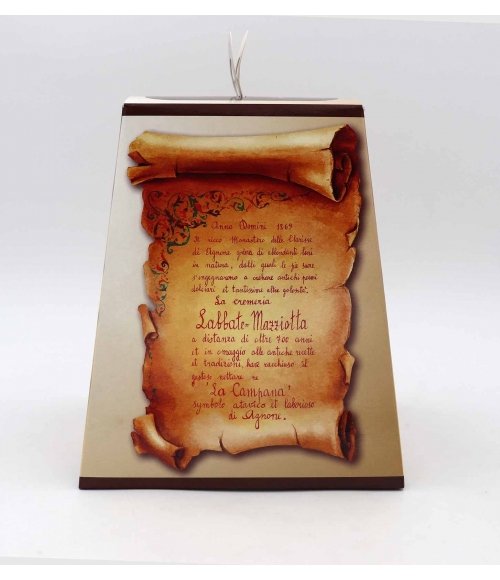 Anno Domini 1269
Il ricco Monastero delle Clarisse
di Agnone godea di abbondanti beni
in natura, dalli quali le pie suore
s'ingegnavano a creare antichi pezzi
dolciari et tantissime altre golosità.
La cremeria
Labbate-Mazziotta
a distanza di oltre 700 anni
et in omaggio alle antiche ricette
et tradizioni, have racchiuso il
gustoso nettare ne
"La Campana"
symbolo atavico et laborioso
di Agnone.